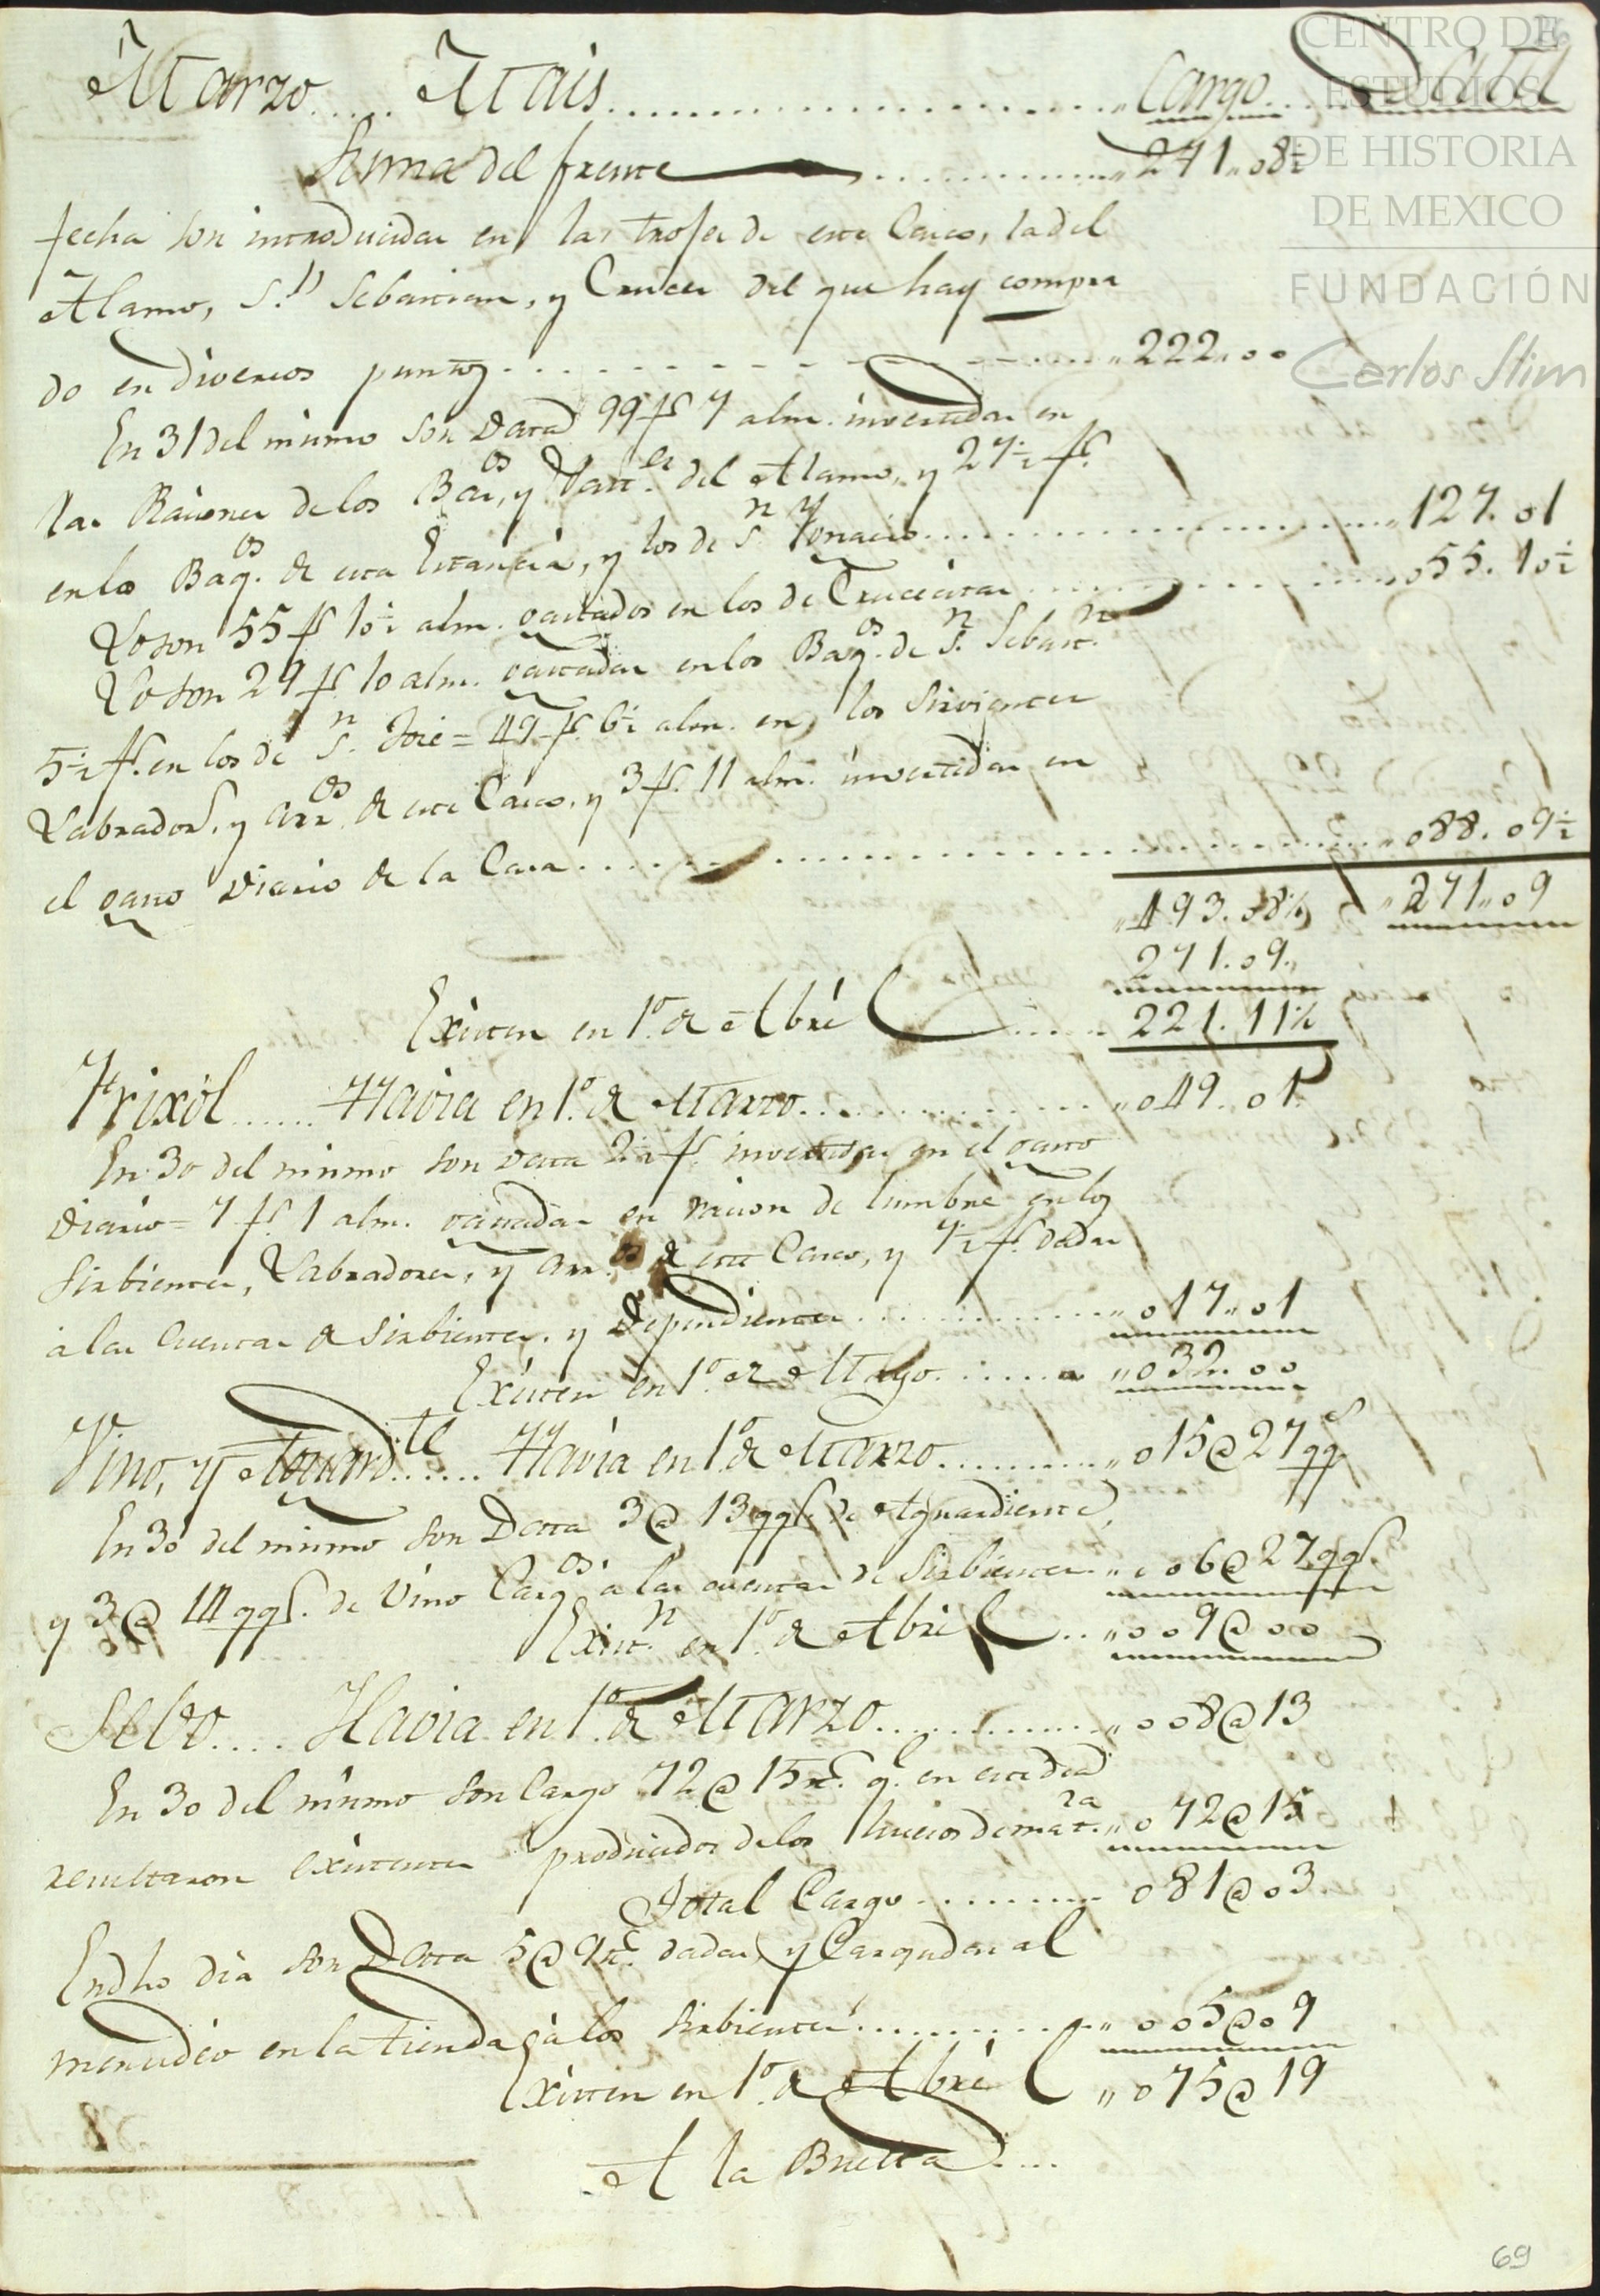 Marzo..... Mais.......................... Cargo..... Data
Suma del frente ................ 271,,08½
fecha son introducidas en las trojes de este Casco, la del
Alamo, S.n Sebastian, y Cruces del que hay compra
do en diversos puntos.................... 222,,00
En 31 del mismo son Data 99 f.s 7 alm. invertidas en
las Raciones de los Baq.os, y Past.es del Alamo, y 27½ f.s
en los Baq.os de esta Estancia, y los de S.n Ygnacio.................... 127.01
Lo son 55 f.s 10½ alm. gastados en los de Crucecitas.................... 055.10½
Lo son 29 f.s 10 alm. gastadas en los Baq.os de S.n Sebast.n
5½ f.s en los de S.n José = 49 f.s 6½ alm. en los Sirvientes
Labrador.s y arr.os de este Casco, y 3 f.s 11 alm. invertidas en
el gasto Diario de la Casa.................... 088.09½
493.08½ 271,,09
271.09,,
Existen en 1.o de Abril ..... 221.11½
Frixol...... Havia en 1.o de Marzo............. 049.01
En 30 del mismo son Data 2½ f.s invertidas en el gasto
Diario = 7 f.s 1 alm. gastadas en racion de lumbre en los
Sirbientes, Labradores, y arr.os de este Casco, y 7½ f.s dadas
a las Cuentas de Sirbientes, y Dependientes............. 017,,01
Existen en 1.o de Mayo........ 032.00
Vino, y Aguard.te...... Havia en 1.o de Marzo.......... 015@27 qq.s
En 30 del mismo son Data 3@ 13 qq.s de Aguardiente,
y 3@ 14 qq.s de Vino Carg.os a las cuentas de Sirbientes.. 006@27 qq.s
Exist.n en 1.o de Abril .. 009@00
Sebo.... Havia en 1.o de Marzo............. 008@13
En 30 del mismo son Cargo 72@15 q.e en este dia
resultaron existentes producidos de los de mat.za 072@15
Total Cargo......... 081@03
En dho dia son Data 5@9 dadas, y Cargadas al
menudéo en la tienda, á los Sirbientes............. 005@09
Existen en 1.o de Abril 075@19
A la Buelta....
69
CENTRO DE
ESTUDIOS
DE HISTORIA
DE MEXICO
FUNDACIÓN
Carlos Slim